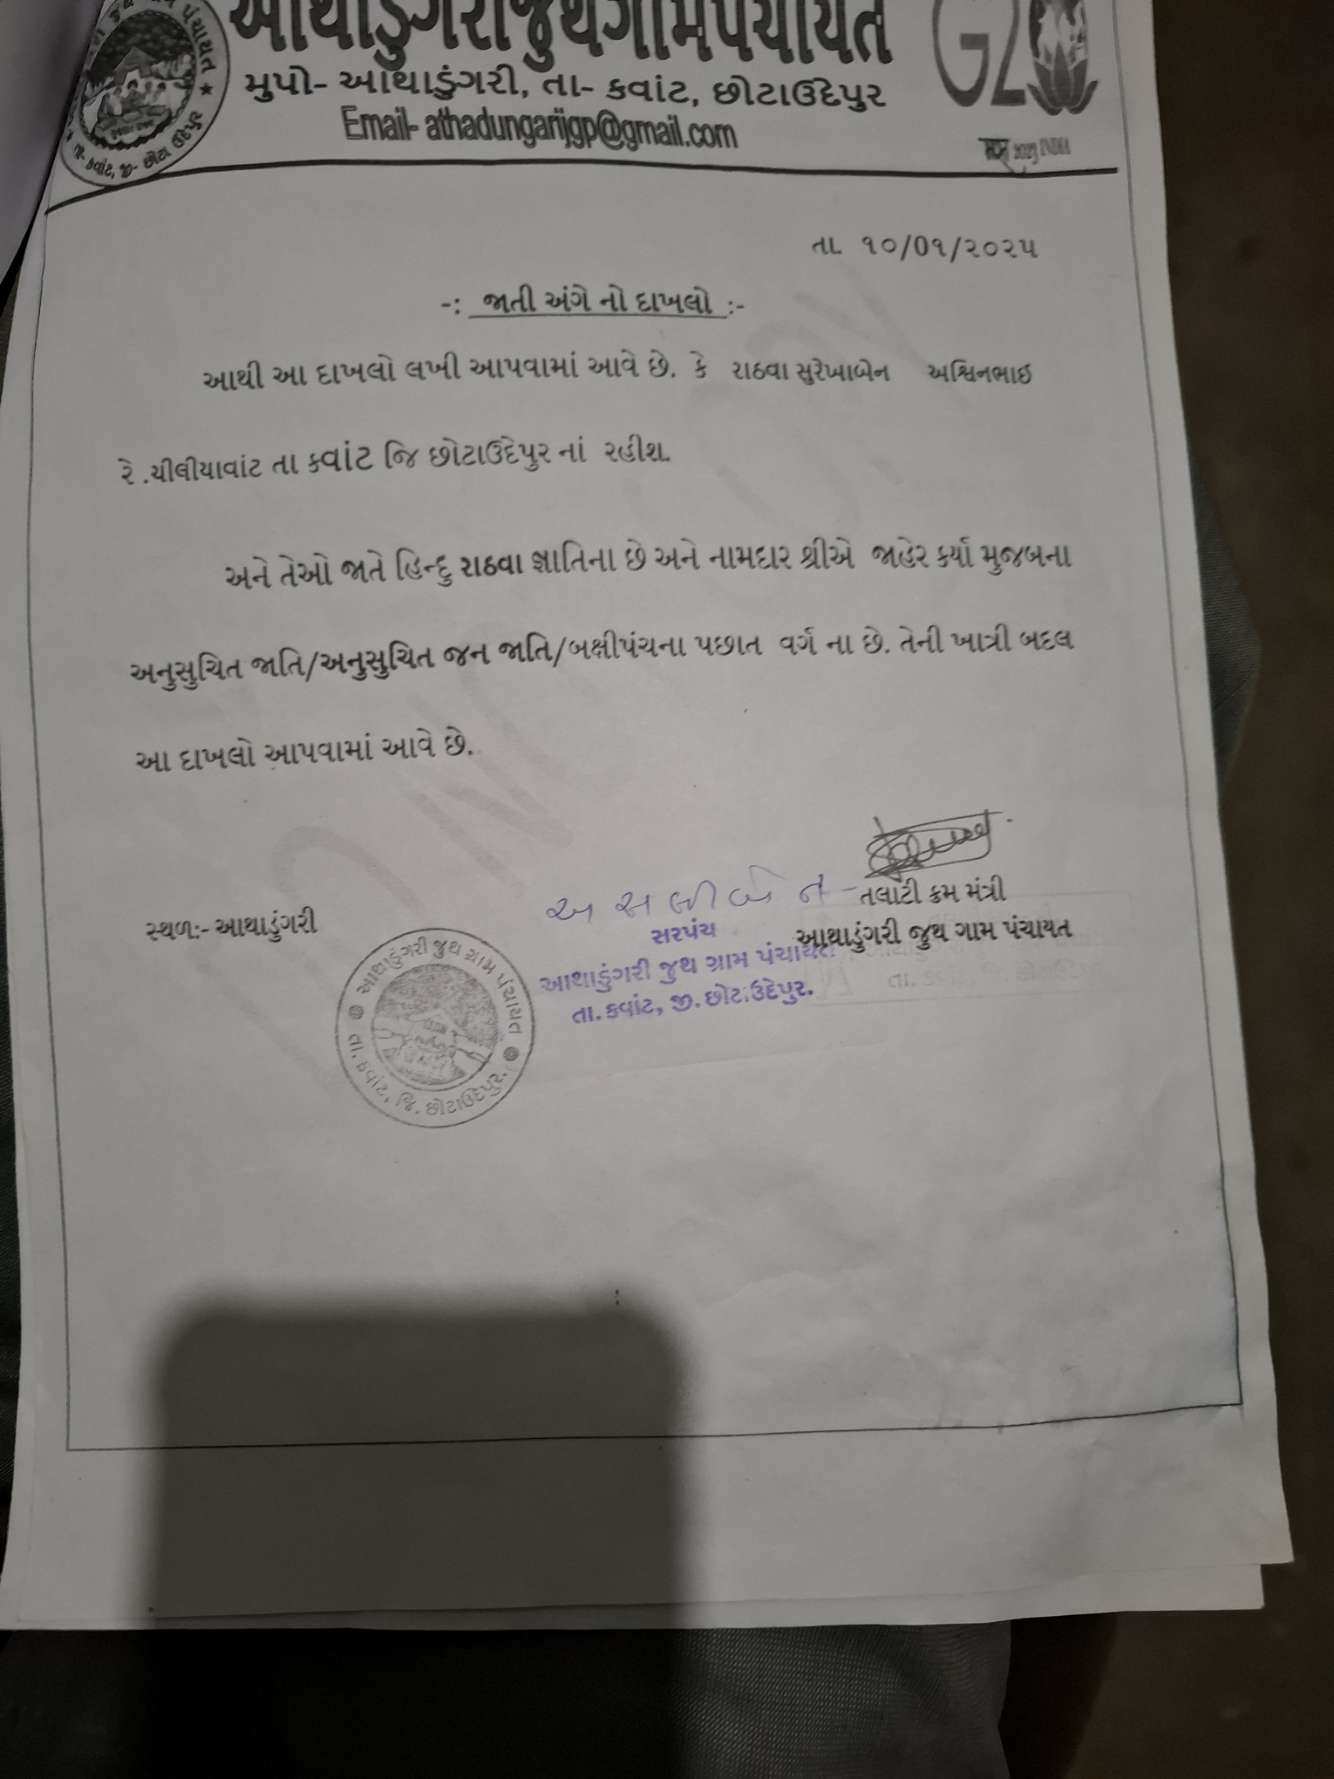 આથાડુંગરી જુથ ગામ પંચાયત
મુપો- આથાડુંગરી, તા- કવાંટ, છોટાઉદેપુર
Email- athadungarijgp@gmail.com
તા- કવાંટ, જી- છોટા ઉદેપુર
G20
2023 INDIA
તા. ૧૦/0૧/૨૦૨૫
-: જાતી અંગે નો દાખલો :-
આથી આ દાખલો લખી આપવામાં આવે છે. કે રાઠવા સુરેખાબેન અશ્વિનભાઇ
રે .ચીલીયાવાંટ તા ક્વાંટ જિ છોટાઉદેપુર નાં રહીશ.
અને તેઓ જાતે હિન્દુ રાઠવા જ્ઞાતિના છે અને નામદાર શ્રીએ જાહેર કર્યા મુજબના
અનુસુચિત જાતિ/અનુસુચિત જન જાતિ/બક્ષીપંચના પછાત વર્ગ ના છે. તેની ખાત્રી બદલ
આ દાખલો આપવામાં આવે છે.
અસલીબેન
તલાટી ક્રમ મંત્રી
સ્થળ:- આથાડુંગરી
સરપંચ
આથાડુંગરી જુથ ગામ પંચાયત
આથાડુંગરી જુથ ગ્રામ પંચાયત
તા. કવાંટ, જી. છોટાઉદેપુર.
આથાડુંગરી જુથ ગ્રામ પંચાયત
તા. કવાંટ, જિ. છોટાઉદેપુર